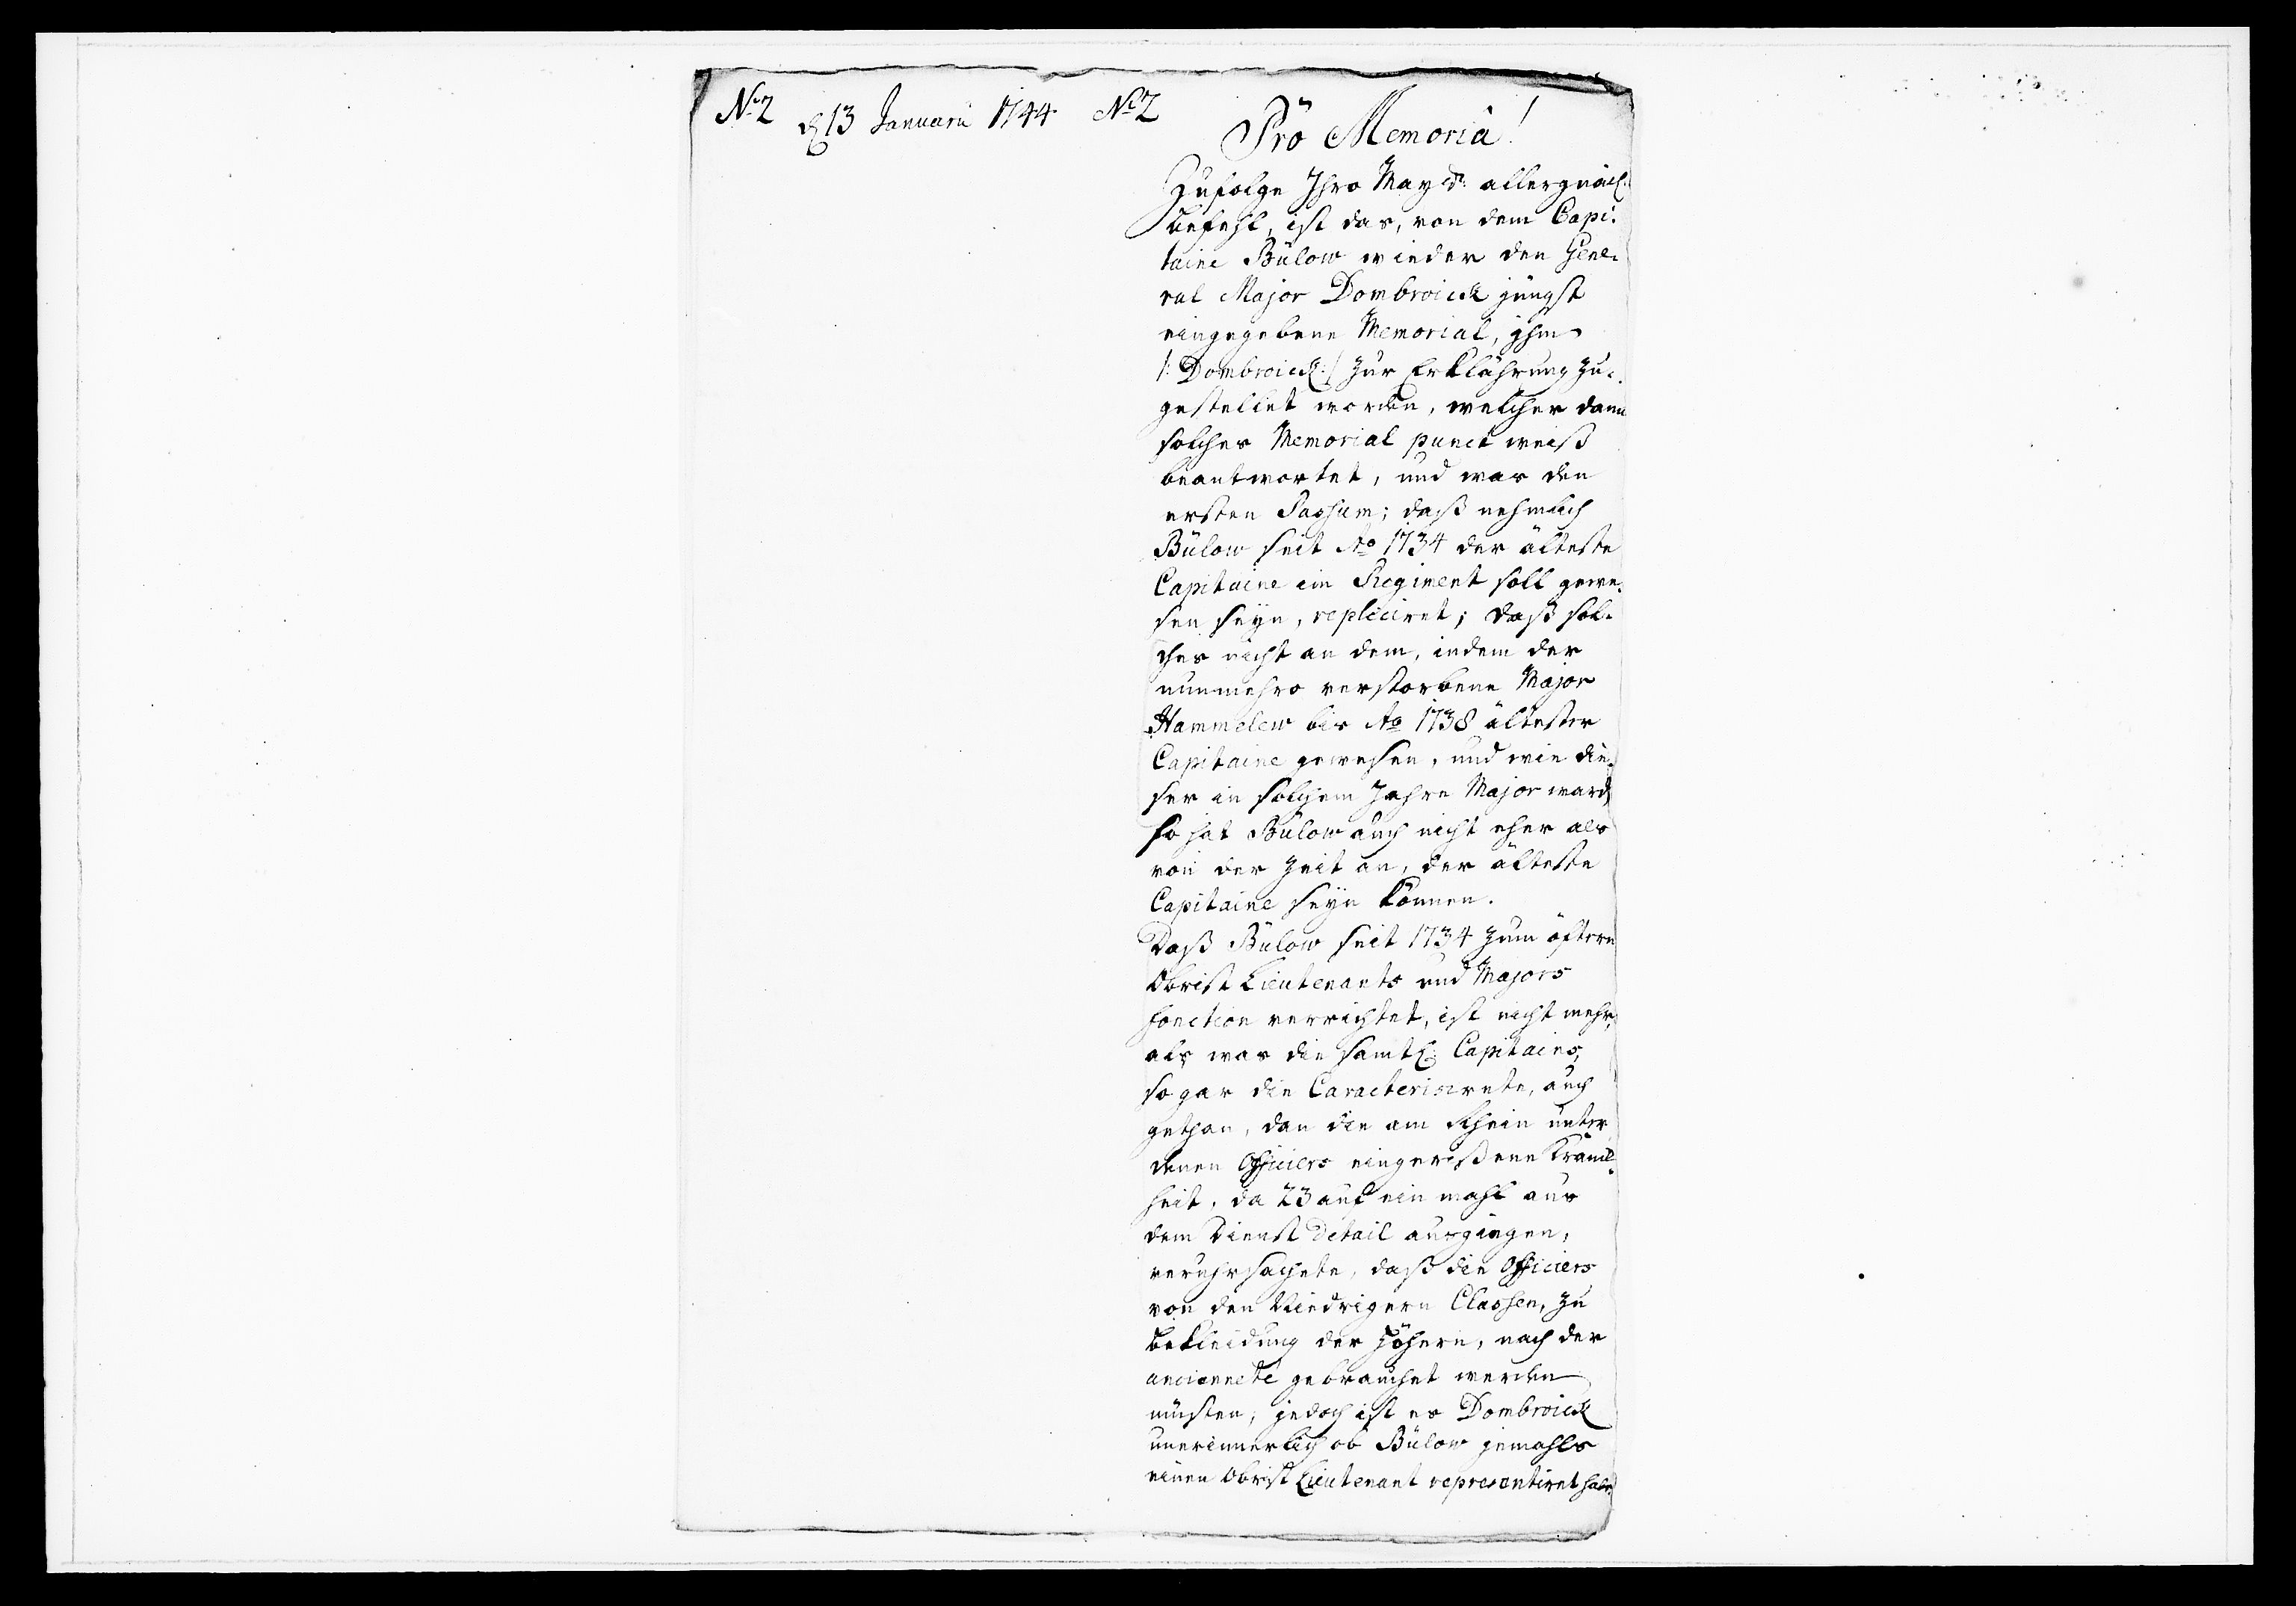 No 2 d 13 Januarii 1744 No 2
Pro Memoria!
Zufolge Ihro Mayst: allergnäd.
befehl, ist das, von dem Capi-
taine Bülow wieder den Gene-
ral Major Dombroick jüngst
eingegebene Memorial, ihm
/: Dombroick :/ zur Erklährung zu-
gestellet worden, welcher dann
solches Memorial punct weiß
beantwortet, und was den
ersten Passum; daß nehmlich
Bülow seit Ao 1734 der älteste
Capitaine im Regiment soll gewe-
sen seyn, repliciret; daß sol-
ches nicht an dem, indem der
nunmehro verstorbene Major
Hammelew bis Ao 1738 ältester
Capitaine gewesen, und wie die-
ser in solchem Jahre Major ward,
so hat Bülow auch nicht eher als
von der Zeit an, der älteste
Capitaine seyn können.
Daß Bülow seit 1734 zum öftern
Obrist Lieutenants und Majors
fonction verrichtet, ist nicht mehr,
als was die samtl: Capitains,
so gar die Caracterisirete, auch
gethan, dan die am Rhein unter
denen Officiers eingerißene Kranck-
heit, da 23 auf ein mahl aus
dem Dienst Détail ausgingen,
veruhrsachete, daß die Officiers
von den Niedrigern Classen, zu
bekleidung der höhern, nach der
ancienneté gebrauchet werden
müsten, jedoch ist es Dombroick
unerinnerlich ob Bülow jemahls
einen Obrist Lieutenant representiret habe.